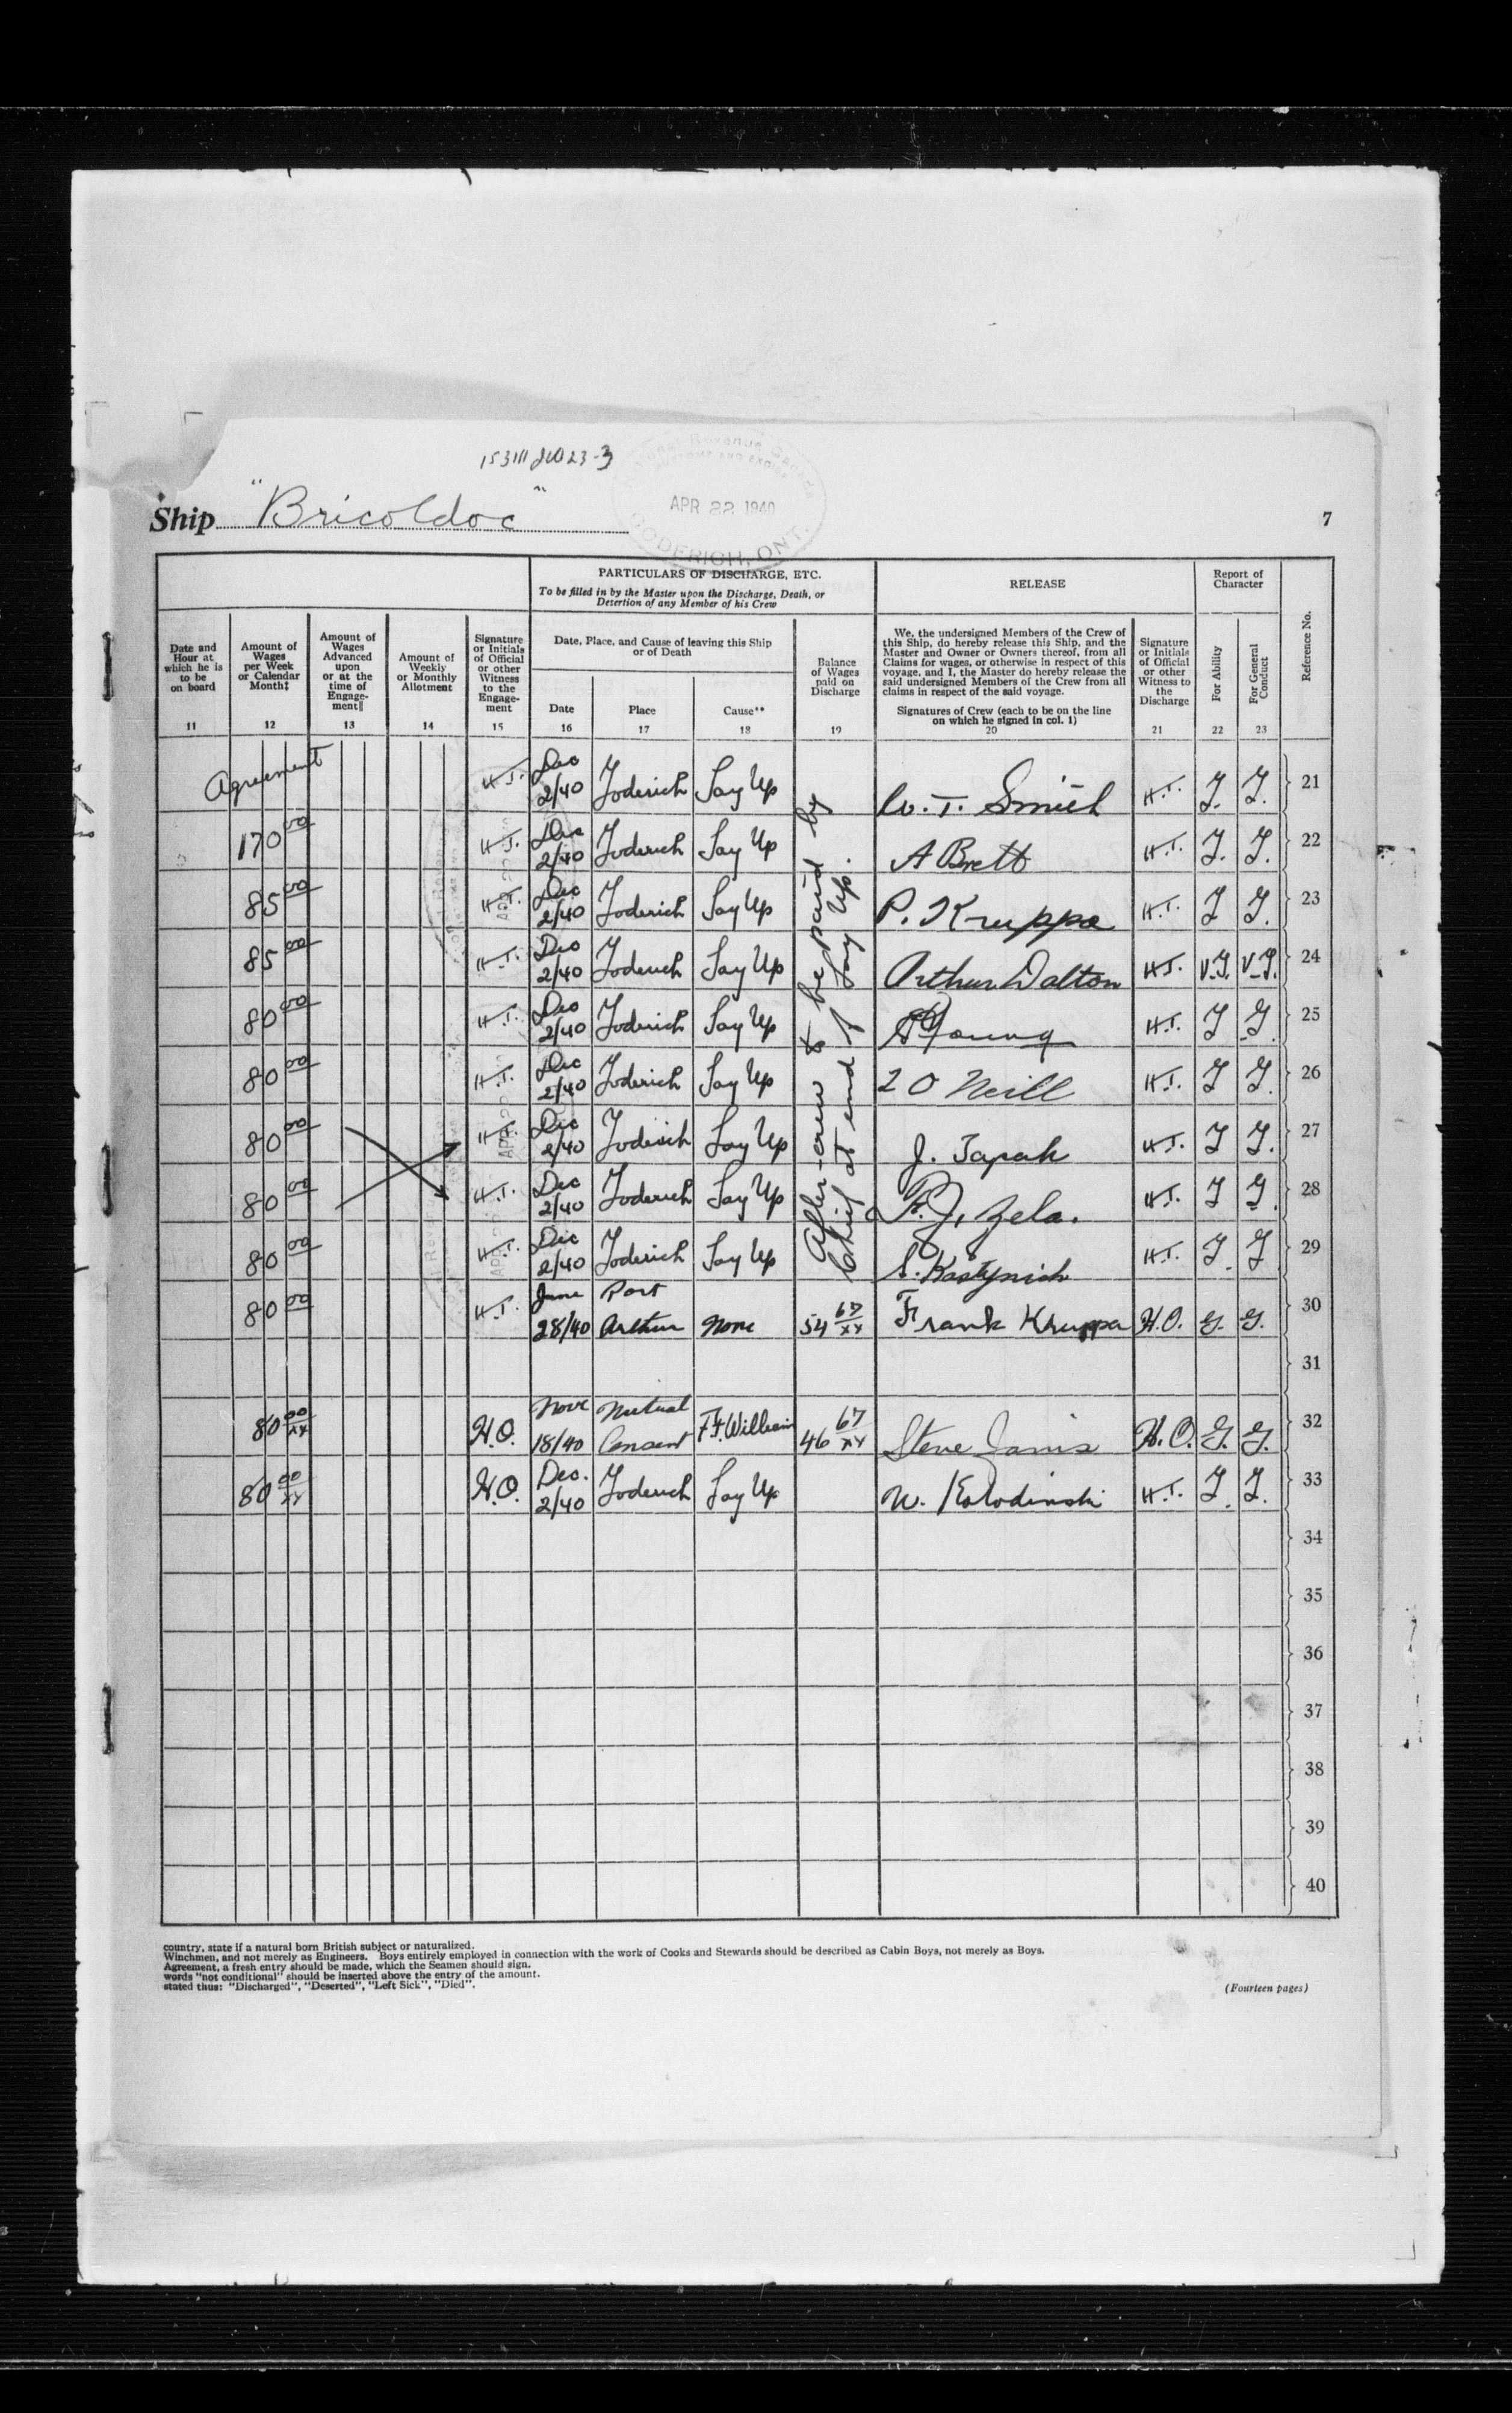 Ship "Bricoldoc"
National Revenue Canada
CUSTOMS AND EXCISE
APR 22 1940
GODERICH, ONT.
7
PARTICULARS OF DISCHARGE, ETC.
To be filled in by the Master upon the Discharge, Death, or
Desertion of any Member of his Crew
RELEASE
Report of
Character
Date and
Hour at
which he is
to be
on board
11
Amount of
Wages
per Week
or Calendar
Month‡
12
Amount of
Wages
Advanced
upon
or at the
time of
Engage-
ment||
13
Amount of
Weekly
or Monthly
Allotment
14
Signature
or Initials
of Official
or other
Witness
to the
Engage-
ment
15
Date, Place, and Cause of leaving this Ship
or of Death
Date
16
Place
17
Cause**
18
Balance
of Wages
paid on
Discharge
19
We, the undersigned Members of the Crew of
this Ship, do hereby release this Ship, and the
Master and Owner or Owners thereof, from all
Claims for wages, or otherwise in respect of this
voyage, and I, the Master do hereby release the
said undersigned Members of the Crew from all
claims in respect of the said voyage.
Signatures of Crew (each to be on the line
on which he signed in col. 1)
20
Signature
or Initials
of Official
or other
Witness to
the
Discharge
21
For Ability
22
For General
Conduct
23
Reference No.
Agreement H.T. Dec 2/40 Goderich Lay Up W. T. Smith H.T. G. G. 21
170 00 H.T. Dec 2/40 Goderich Lay Up A Brett H.T. G. G. 22
85 00 H.T. Dec 2/40 Goderich Lay Up P. Kruppa H.T. G G. 23
85 00 H.T. Dec 2/40 Goderich Lay Up Arthur Dalton H.T. V.G. V.G. 24
80 00 H.T. Dec 2/40 Goderich Lay Up Young H.T. G G. 25
80 00 H.T. Dec 2/40 Goderich Lay Up O Neill H.T. G G. 26
80 00 H.T. Dec 2/40 Goderich Lay Up J. Tapak H.T. G G. 27
80 00 H.T. Dec 2/40 Goderich Lay Up P. J. Zela. H.T. G G. 28
80 00 H.T. Dec 2/40 Goderich Lay Up S. Kostynich H.T. G. G 29
After-crew to be paid by
Chief at end of Lay Up.
80 00 H.T. June 28/40 Port Arthur None 54 67/xx Frank Kruppa H.O. G. G. 30
31
80 00/xx H.O. Nov 18/40 Mutual Consent Ft. William 46 67/xx Steve Janis H.O. G. G. 32
80 00/xx H.O. Dec. 2/40 Goderich Lay Up W. Kolodinski H.T. G. G. 33
34
35
36
37
38
39
40
country, state if a natural born British subject or naturalized.
Winchmen, and not merely as Engineers. Boys entirely employed in connection with the work of Cooks and Stewards should be described as Cabin Boys, not merely as Boys.
Agreement, a fresh entry should be made, which the Seamen should sign.
words "not conditional" should be inserted above the entry of the amount.
stated thus: "Discharged", "Deserted", "Left Sick", "Died".
(Fourteen pages)